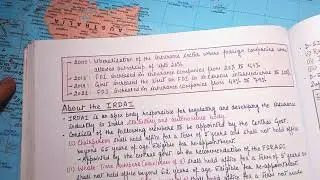 AUSTRALIA
• 2000: Liberalisation of the Insurance sector where foreign companies were allowed ownership of upto 26%
• 2015: FDI increased in insurance companies from 26% to 49%
• 2019: Govt increased the limit on FDI in insurance intermediaries to 100%
• 2021: FDI increased in insurance companies from 49% to 74%
About the IRDAI
• IRDAI is an apex body responsible for regulating and developing the insurance
industry in India. Statutory and autonomous body.
• Consists of the following members to be appointed by the Central Govt.
(1) Chairperson shall hold office for a Term of 5 years and shall not hold office
beyond 65 years of age. Eligible for re-appointment.
- Appointed by the central govt on the recommendation of the FSRASC
(2) Whole Time Members (maximum of 5) shall hold office for a Term of 5 years
beyond 62 years of age. Eligible for re-appointment.